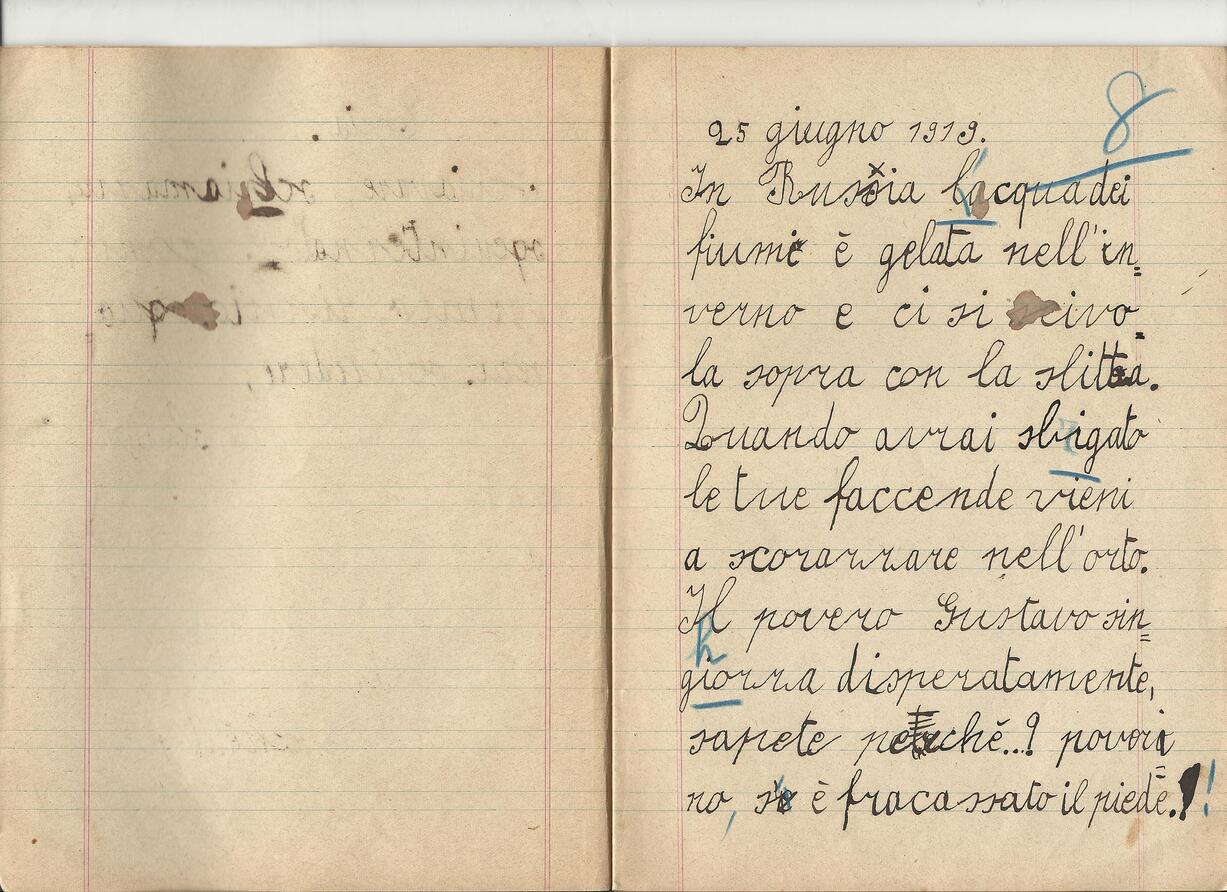 8
25 giugno 1919.
In Russia l'acqua dei
fiumi è gelata nell'in=
verno e ci si scivo=
la sopra con la slitta.
Quando avrai sbrigato
le tue faccende vieni
a scorazzare nell'orto.
Il povero Gustavo sin=
h
giozza disperatamente,
sapete perchè..? poveri=
no, si è fracassato il piede.!!